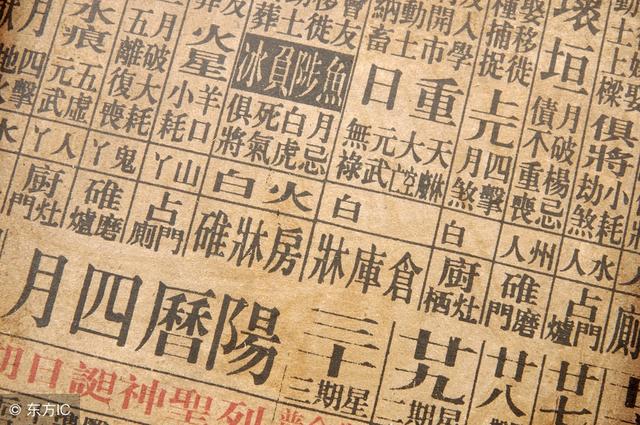 俱將
小耗
劫煞
水人
占門爐
廿七
壞垣
月破
楊忌
債不
重喪
州人
碓磨門
廿八
娶移徙
種捕捉
上元
四擊
月煞
白
廚灶栖
廿九
星期二
人學
開市
動土
納畜
重日
大空
元武
無祿
白
倉庫牀
三十
星期三
魚陟負冰
月忌
白虎
死氣
俱將
火白
房牀碓
火星
羊口
小耗
山丫
占門廁
月破大耗
五離復喪
鬼丫
碓磨爐
水痕
五虛
元武
人丫
廚灶門
四擊
陽曆四月
列聖神誕日期
© 东方IC